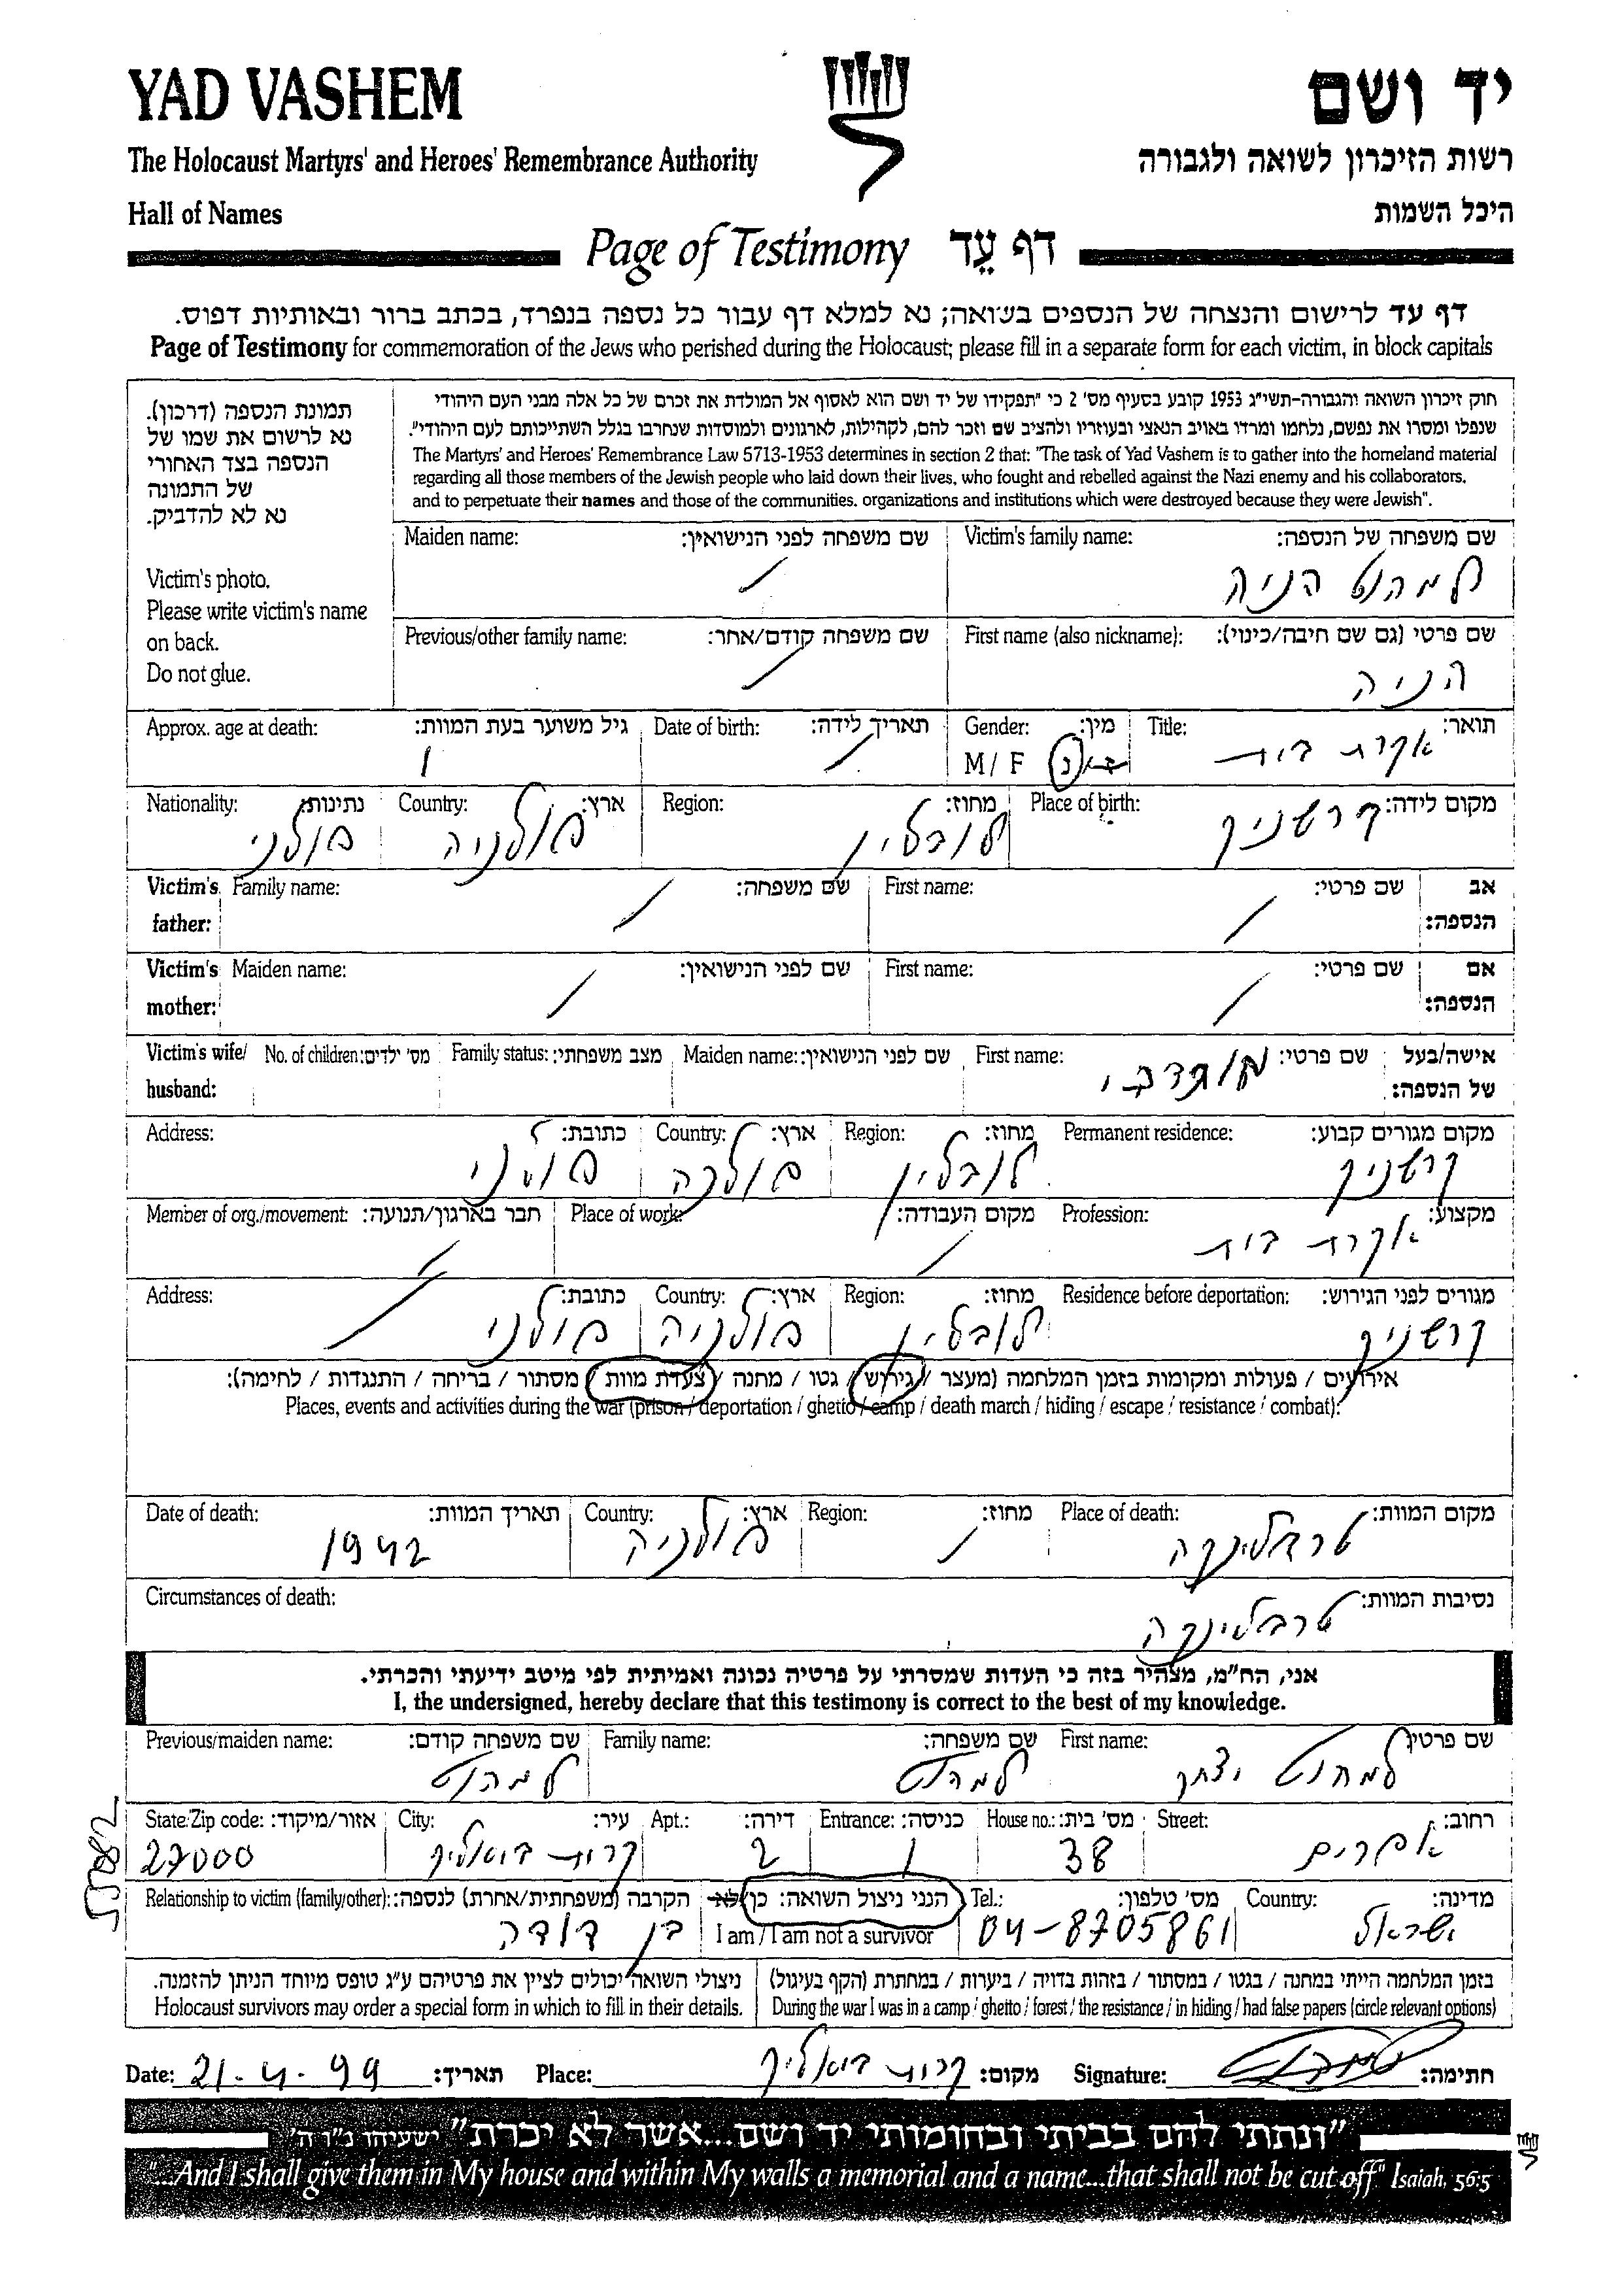 YAD VASHEM
יד ושם
The Holocaust Martyrs' and Heroes' Remembrance Authority
רשות הזיכרון לשואה ולגבורה
Hall of Names
היכל השמות
Page of Testimony דף עֵד
דף עד לרישום והנצחה של הנספים בשואה; נא למלא דף עבור כל נספה בנפרד, בכתב ברור ובאותיות דפוס.
Page of Testimony for commemoration of the Jews who perished during the Holocaust; please fill in a separate form for each victim, in block capitals
תמונת הנספה (דרכון).
נא לרשום את שמו של
הנספה בצד האחורי
של התמונה
נא לא להדביק.
Victim's photo.
Please write victim's name
on back.
Do not glue.
חוק זיכרון השואה והגבורה-תשי"ג 1953 קובע בסעיף מס' 2 כי "תפקידו של יד ושם הוא לאסוף אל המולדת את זכרם של כל אלה מבני העם היהודי
שנפלו ומסרו את נפשם, נלחמו ומרדו באויב הנאצי ובעוזריו ולהציב שם וזכר להם, לקהילות, לארגונים ולמוסדות שנחרבו בגלל השתייכותם לעם היהודי".
The Martyrs' and Heroes' Remembrance Law 5713-1953 determines in section 2 that: "The task of Yad Vashem is to gather into the homeland material
regarding all those members of the Jewish people who laid down their lives, who fought and rebelled against the Nazi enemy and his collaborators,
and to perpetuate their names and those of the communities, organizations and institutions which were destroyed because they were Jewish".
Maiden name: שם משפחה לפני הנישואין: Victim's family name: שם משפחה של הנספה:
למהוט הניה
Previous/other family name: שם משפחה קודם/אחר: First name (also nickname): שם פרטי (גם שם חיבה/כינוי):
הניה
Approx. age at death: גיל משוער בעת המוות: Date of birth: תאריך לידה: Gender: מין: Title: תואר:
M / F ז/נ עקרת בית
Nationality: נתינות: Country: ארץ: Region: מחוז: Place of birth: מקום לידה:
פולני פולניה לובלין קרשניק
Victim's Family name: שם משפחה: First name: שם פרטי: אב
father: הנספה:
Victim's Maiden name: שם לפני הנישואין: First name: שם פרטי: אם
mother: הנספה:
Victim's wife/ No. of children: מס' ילדים: Family status: מצב משפחתי: Maiden name: שם לפני הנישואין: First name: שם פרטי: אישה/בעל
husband: של הנספה:
Address: כתובת: Country: ארץ: Region: מחוז: Permanent residence: מקום מגורים קבוע:
פולני לובלין קרשניק
Member of org./movement: חבר בארגון/תנועה: Place of work: מקום העבודה: Profession: מקצוע:
עקרת בית
Address: כתובת: Country: ארץ: Region: מחוז: Residence before deportation: מגורים לפני הגירוש:
פולני פולניה לובלין קרשניק
אירועים / פעולות ומקומות בזמן המלחמה (מעצר / גירוש / גטו / מחנה / צעדת מוות / מסתור / בריחה / התנגדות / לחימה):
Places, events and activities during the war (prison / deportation / ghetto / camp / death march / hiding / escape / resistance / combat):
Date of death: תאריך המוות: Country: ארץ: Region: מחוז: Place of death: מקום המוות:
1942 פולניה טרבלינקה
Circumstances of death: נסיבות המוות:
טרבלינקה
אני, הח"מ, מצהיר בזה כי העדות שמסרתי על פרטיה נכונה ואמיתית לפי מיטב ידיעתי והכרתי.
I, the undersigned, hereby declare that this testimony is correct to the best of my knowledge.
Previous/maiden name: שם משפחה קודם: Family name: שם משפחה: First name: שם פרטי:
למהוט למהוט למהוט יצחק
State/Zip code: אזור/מיקוד: City: עיר: Apt.: דירה: Entrance: כניסה: House no.: מס' בית: Street: רחוב:
27000 קרית ביאליק 2 1 38 אפרים
Relationship to victim (family/other): הקרבה (משפחתית/אחרת) לנספה: הנני ניצול השואה: כן/לא Tel.: מס' טלפון: Country: מדינה:
בן דודה I am / I am not a survivor 04-8705861 ישראל
ניצולי השואה יכולים לציין את פרטיהם ע"ג טופס מיוחד הניתן להזמנה. בזמן המלחמה הייתי במחנה / בגטו / במסתור / בזהות בדויה / ביערות / במחתרת (הקף בעיגול)
Holocaust survivors may order a special form in which to fill in their details. During the war I was in a camp / ghetto / forest / the resistance / in hiding / had false papers (circle relevant options)
Date: 21.4.99 תאריך: Place: קרית ביאליק מקום: Signature: חתימה:
"ונתתי להם בביתי ובחומותי יד ושם....אשר לא יכרת" ישעיהו נ"ו ה'
"...And I shall give them in My house and within My walls a memorial and a name...that shall not be cut off" Isaiah, 56:5